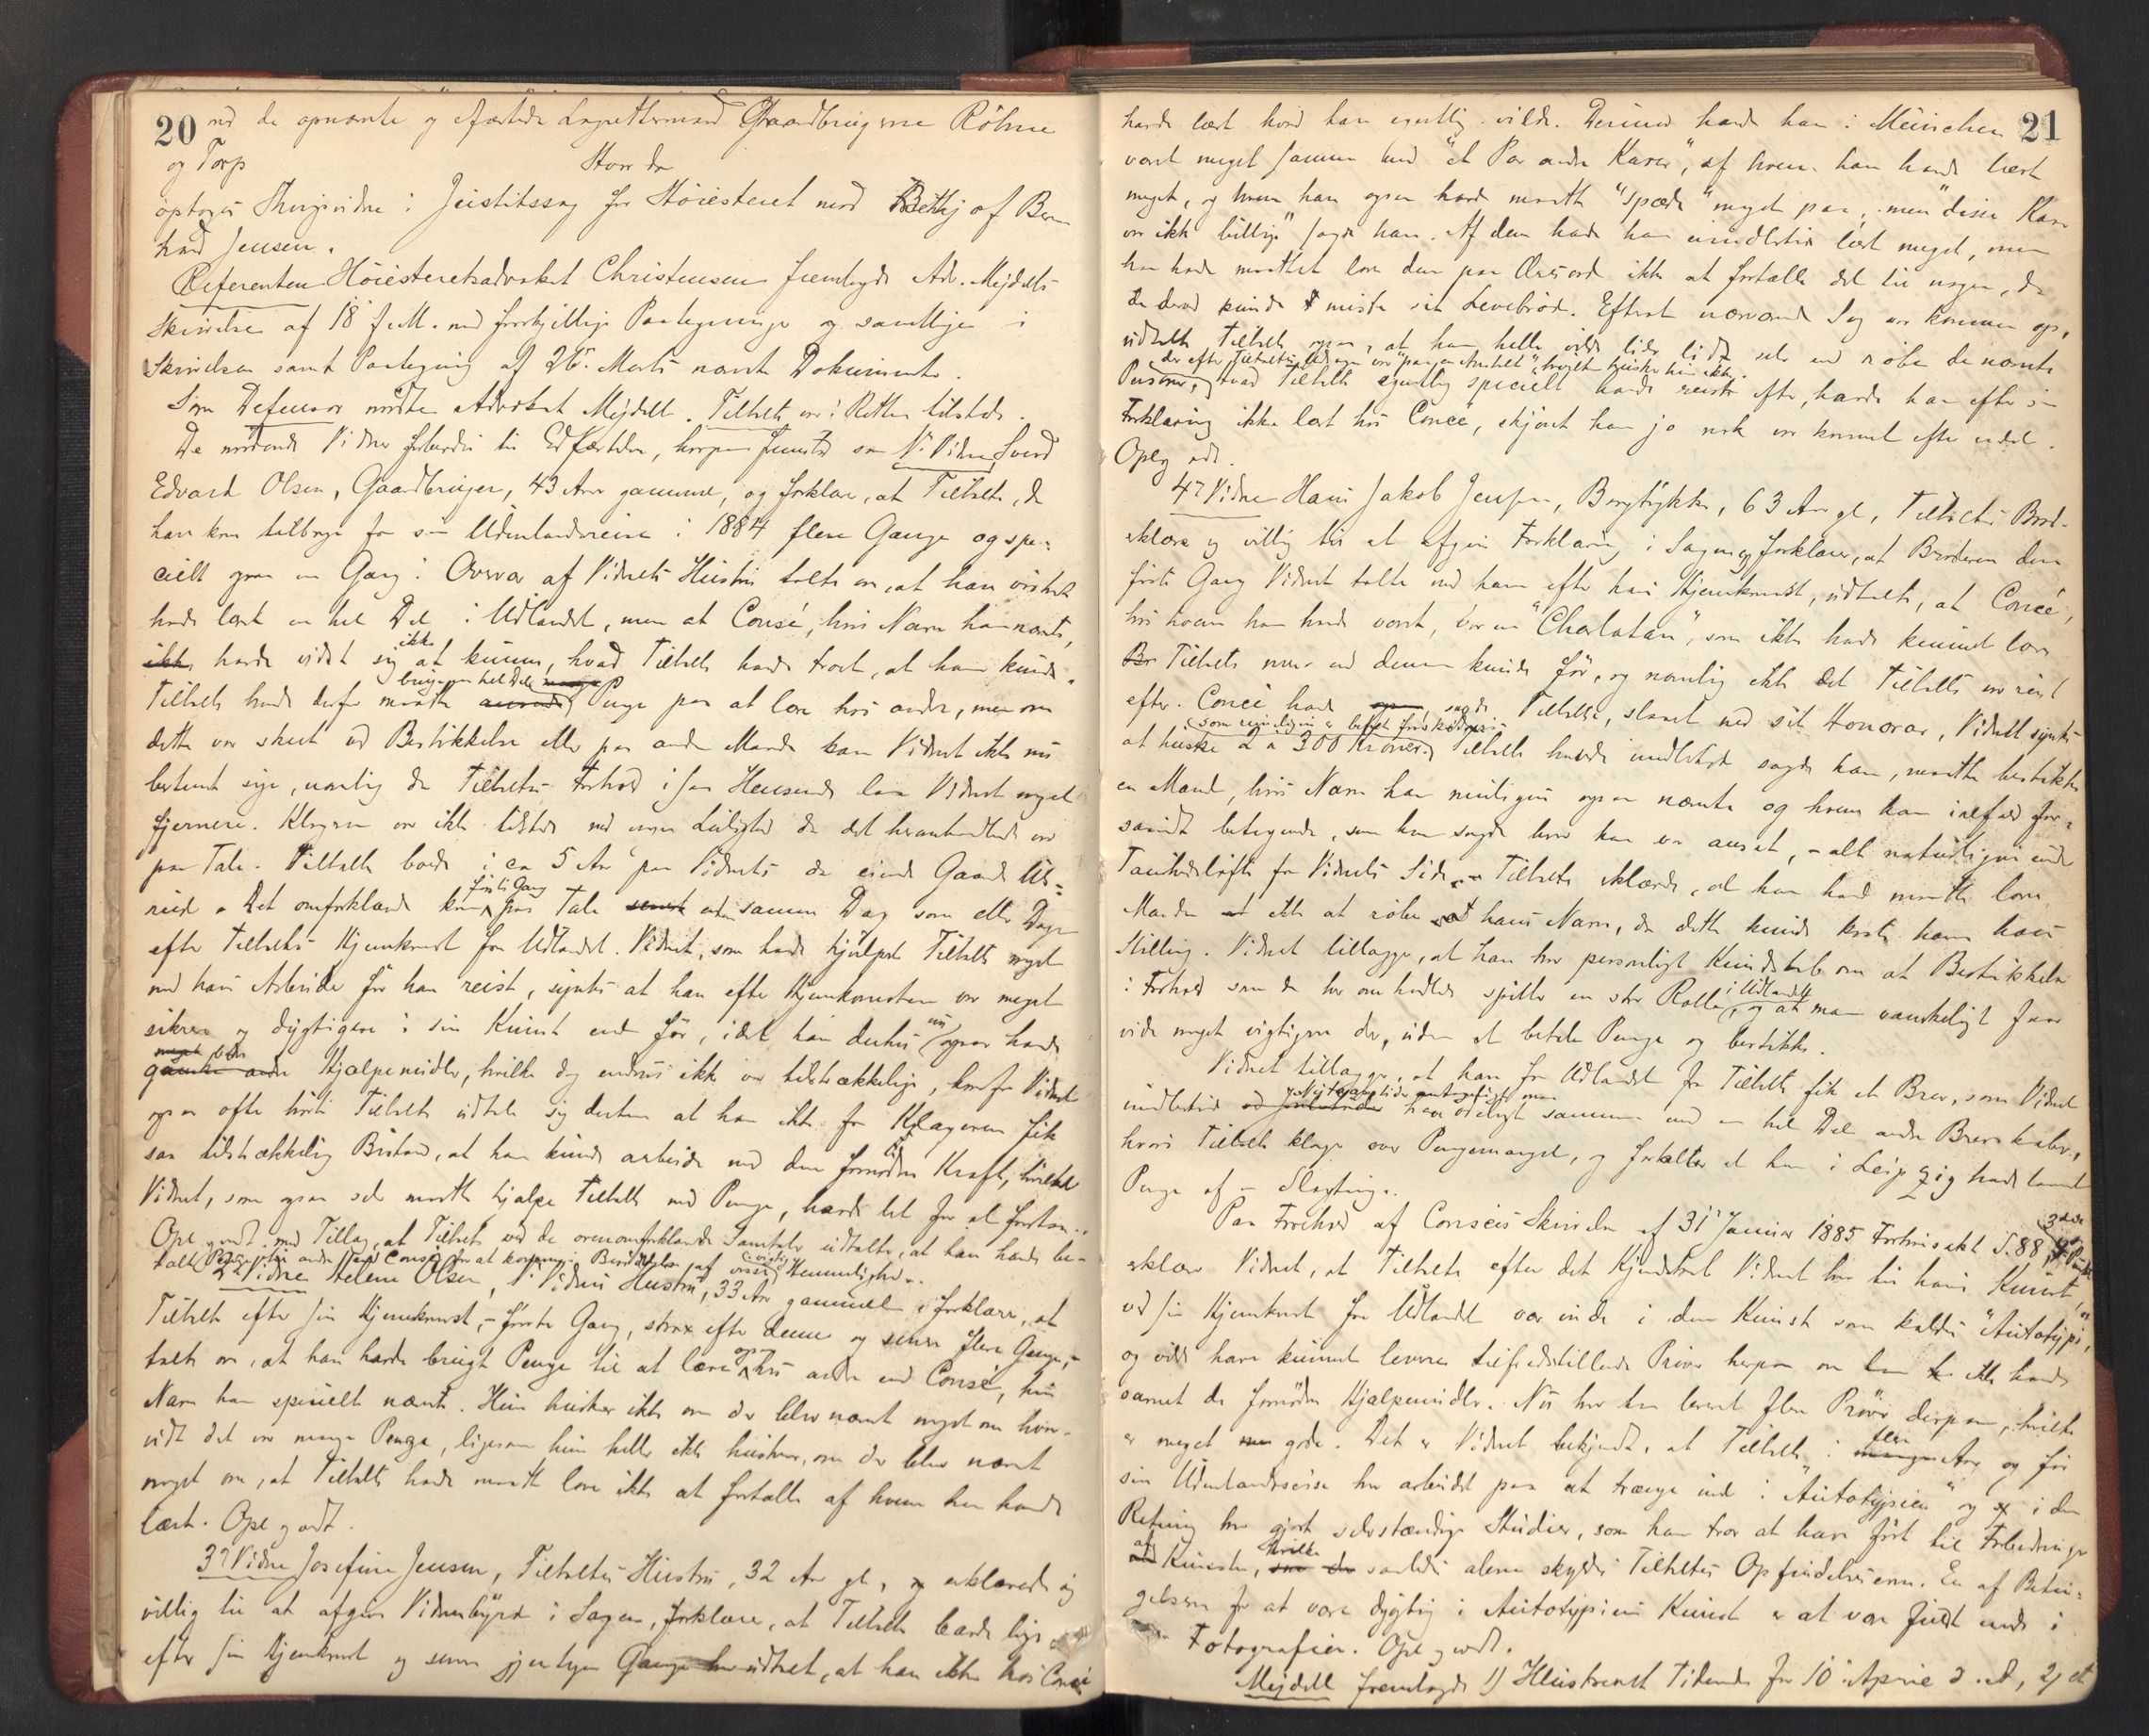 20 ved de opnævnte og edfæstede Lagrettemænd Gaardbrugerne Röhme
og Torp
Hvor da
optoges Thingsvidne i Justitssag for Höiesteret mod Betthj af Bern
hard Jensen.
Referenten Höiesteretsadvokat Christensen fremlagde Adv. Mejdells
Skrivelse af 18 f.M. med forskjellige Paategninger og samtlige i
Skrivelsen samt Paategning af 26 Marts nævnte Dokumenter.
Som Defensor mödte Advokat Mejdell. Tiltalte var i Retten tilstede.
De mödende Vidner forberedes til Edfæstelse, hvorpaa fremstod som 1ste Vidne Svend
Edvard Olsen, Gaardbruger, 43 Aar gammel, og forklarer, at Tiltalte, da
han kom tilbage fra sin Udenlandsreise i 1884 flere Gange og spe-
cielt ogsaa en Gang i Overvær af Vidnets Hustru talte om, at han vistnok
havde lært en hel Del i Udlandet, men at Consé, hvis Navn han nævnte,
ikke havde vidst sig ikke at kunne, hvad Tiltalte havde troet, at han kunde.
Tiltalte havde derfor maattet bruge en hel Del Penge paa at lære hos andre, men om
dette var skeet ved Bestikkelse eller paa anden Maade kan Vidnet ikke nu
bestemt sige, navnlig da Tiltaltes Forhold i saa Henseende laa Vidnet noget
fjernere. Klageren var ikke tilstede ved nogen Leilighed da det heromhandlede var
paa Tale. Tiltalte boede i ca 5 Aar paa Vidnets da eiende Gaard Ul-
rud. Det omforklarede kom förste Gang paa Tale enten samme Dag som eller Dagen
efter Tiltaltes Hjemkomst fra Udlandet. Vidnet, som havde hjulpet Tiltalte noget
med hans Arbeide för han reiste, syntes at han efter Hjemkomsten var meget
sikrere og dygtigere i sin Kunst end för, idet han derhos nu ogsaa havde
meget bedre Hjælpemidler, hvilke dog endnu ikke var tilstrækkelige, hvorfor Vidnet
ogsaa ofte hörte Tiltalte udtale sig derhen at han ikke fra Klageren fik
saa tilstrækkelig Bistand, at han kunde arbeide med den fornödne Kraft, hvilket
Vidnet, som ogsaa selv maatte hjælpe Tiltalte med Penge, havde let for at forstaa.
Opl. vedt. med Tillæg, at Tiltalte ved de ovenomforklarede Samtaler udtalte, at han havde be-
talt Penge til andre end Consé for at komme i Besiddelse af visse vigtige Hemmeligheder.
2det Vidne Helene Olsen, 1 Vidnes Hustru, 33 Aar gammel, forklarer, at
Tiltalte efter sin Hjemkomst, förste Gang, strax efter denne og senere flere Gange,
talte om, at han havde brugt Penge til at lære ogsaa hos andre end Consé, hvis
Navn han specielt nævnte. Hun husker ikke om der blev nævnt noget om hvor-
vidt det var mange Penge, ligesom hun heller ikke husker, om der blev nævnt
noget om, at Tiltalte havde maattet love ikke at fortælle af hvem han havde
lært. Opl. vedt.
3die Vidne Josefine Jensen, Tiltaltes Hustru, 32 Aar gl., erklærede sig
villig til at afgive Vidnesbyrd i Sagen, forklarer, at Tiltalte baade lige
efter sin Hjemkomst og senere gjentagne Gange har udtalt, at han ikke hos Concé
21
havde lært hvad han egentlig vilde. Derimod havde han i München
været meget sammen med "et Par andre Karer", af hvem han havde lært
meget, og hvem han ogsaa havde maattet "spæde" meget paa, men "disse Karer
var ikke billige" sagde han. Af dem havde han imidlertid lært meget, men
han havde maattet love dem paa Æresord ikke at fortælle det til nogen, da
de derved kunde miste sit Levebröd. Efterat nærværende Sag var kommen op,
udtalte Tiltalte ogsaa, at han heller vilde lide lidt selv end röbe de nævnte
Personer, der efter Tiltaltes Udsagn var "paa en Anstalt", hvilken husker hun ikke.
Hvad Tiltalte egentlig specielt havde reist efter, havde han efter sin
Forklaring ikke lært hos Concé, skjönt han jo nok var kommet efter endel.
Opl. vedt.
4de Vidne Hans Jakob Jensen, Bogtrykker, 63 Aar gl., Tiltaltes Broder
erklærer sig villig til at afgive Forklaring i Sagen og forklarer, at Broderen den
förste Gang Vidnet talte med ham efter hans Hjemkomst, udtalte, at Concé,
hos hvem han havde været, var en "Charlatan", som ikke havde kunnet lære
Tiltalte mere end denne kunde för, og navnlig ikke det Tiltalte var reist
efter. Concé havde, sagde Tiltalte, slaaet ned sit Honorar, Vidnet syntes
at huske 2 a 300 Kroner. Tiltalte havde imidlertid sagde han, maattet bestikke
en Mand, hvis Navn han muligens ogsaa nævnte og hvem han ialfald for-
saavidt betegnede, som han sagde hvor han var ansat, - alt naturligvis under
Taushedslöfte fra Vidnets Side. - Tiltalte erklærede, at han havde maattet love
Manden ikke at röbe hans Navn, da dette kunde koste ham hans
Stilling. Vidnet tillægger, at han har personligt Kjendskab om at Bestikkelse
i Forhold som de her omhandlede spiller en stor Rolle i Udlandet, og at man vanskeligt faar
vide noget vigtigere der, uden at betale Penge og bestikke.
Vidnet tillægger, at han fra Udlandet fra Tiltalte fik et Brev, som Vidnet
imidlertid har ödelagt sammen med en hel Del andre Brevskaber,
hvori Tiltalte klager over Pengemangel, og fortæller at han i Leipzig havde laant
Penge af en Slægtning.
Paa Forehold af Consées Skrivelse af 31 Januar 1885 Forhörsakt S. 88, 3die
erklærer Vidnet, at Tiltalte efter det Kjendskab Vidnet har til hans Kunst,
ved sin Hjemkomst fra Udlandet var inde i den Kunst som kaldes "Autotypi",
og vilde have kunnet levere tilfredsstillende Pröver herpaa om han ikke havde
savnet de fornödne Hjælpemidler. Nu har han leveret flere Pröver derpaa, hvilke
er meget gode. Det er Vidnet bekjendt, at Tiltalte i flere Aar og för
sin Udenlandsreise har arbeidet paa at trænge ind i "Autotypien" og i den
Retning har gjort selvstændige Studier, som han tror at have fört til Forbedringer
af Kunsten, hvilke saaledes alene skyldes Tiltaltes Opfindelsesevne. En af Betin-
gelserne for at være dygtig i Autotypiens Kunst er at være fuldt inde i
Fotografien. Opl. vedt.
Mejdell fremlagde 1) Illustreret Tidende for 10 April d.A., 2) et